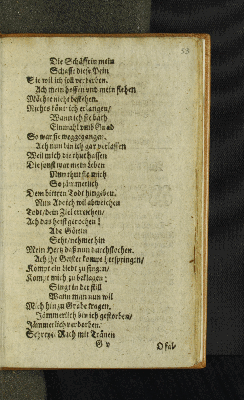 53
Die Schäffrin mein
Schafft diese Pein
Sie wil ich soll verderben.
Ach mein hoffen und mein flehen
Möchte nicht bestehen.
Nichts kont ich erlangen/
Wann ich sie bath
Einmahl umb Gnad
So war sie weggegangen.
Ach nun bin ich gar verlassen
Weil mich die thut hassen
Die sonst war mein Leben
Nun thut sie mich
So jämmerlich
Dem bittren Todt hingeben.
Nun Ade ich wil abweichen
Todt/dem Ziel erreichen/
Ach das heist gerochen!
Ade Göttin
Seht/nehmet hin
Mein Hertz daß nun durchstochen.
Ach ihr Geister kompt herspringen/
Kompt ein Liedt zu singen/
Kompt mich zu beklagen:
Singt in der still
Wann man nun wil
Mich hin zu Grabe tragen.
Jämmerlich bin ich gestorben/
Jämmerlich verdorben.
Schreyt Rach mit Tränen
G v